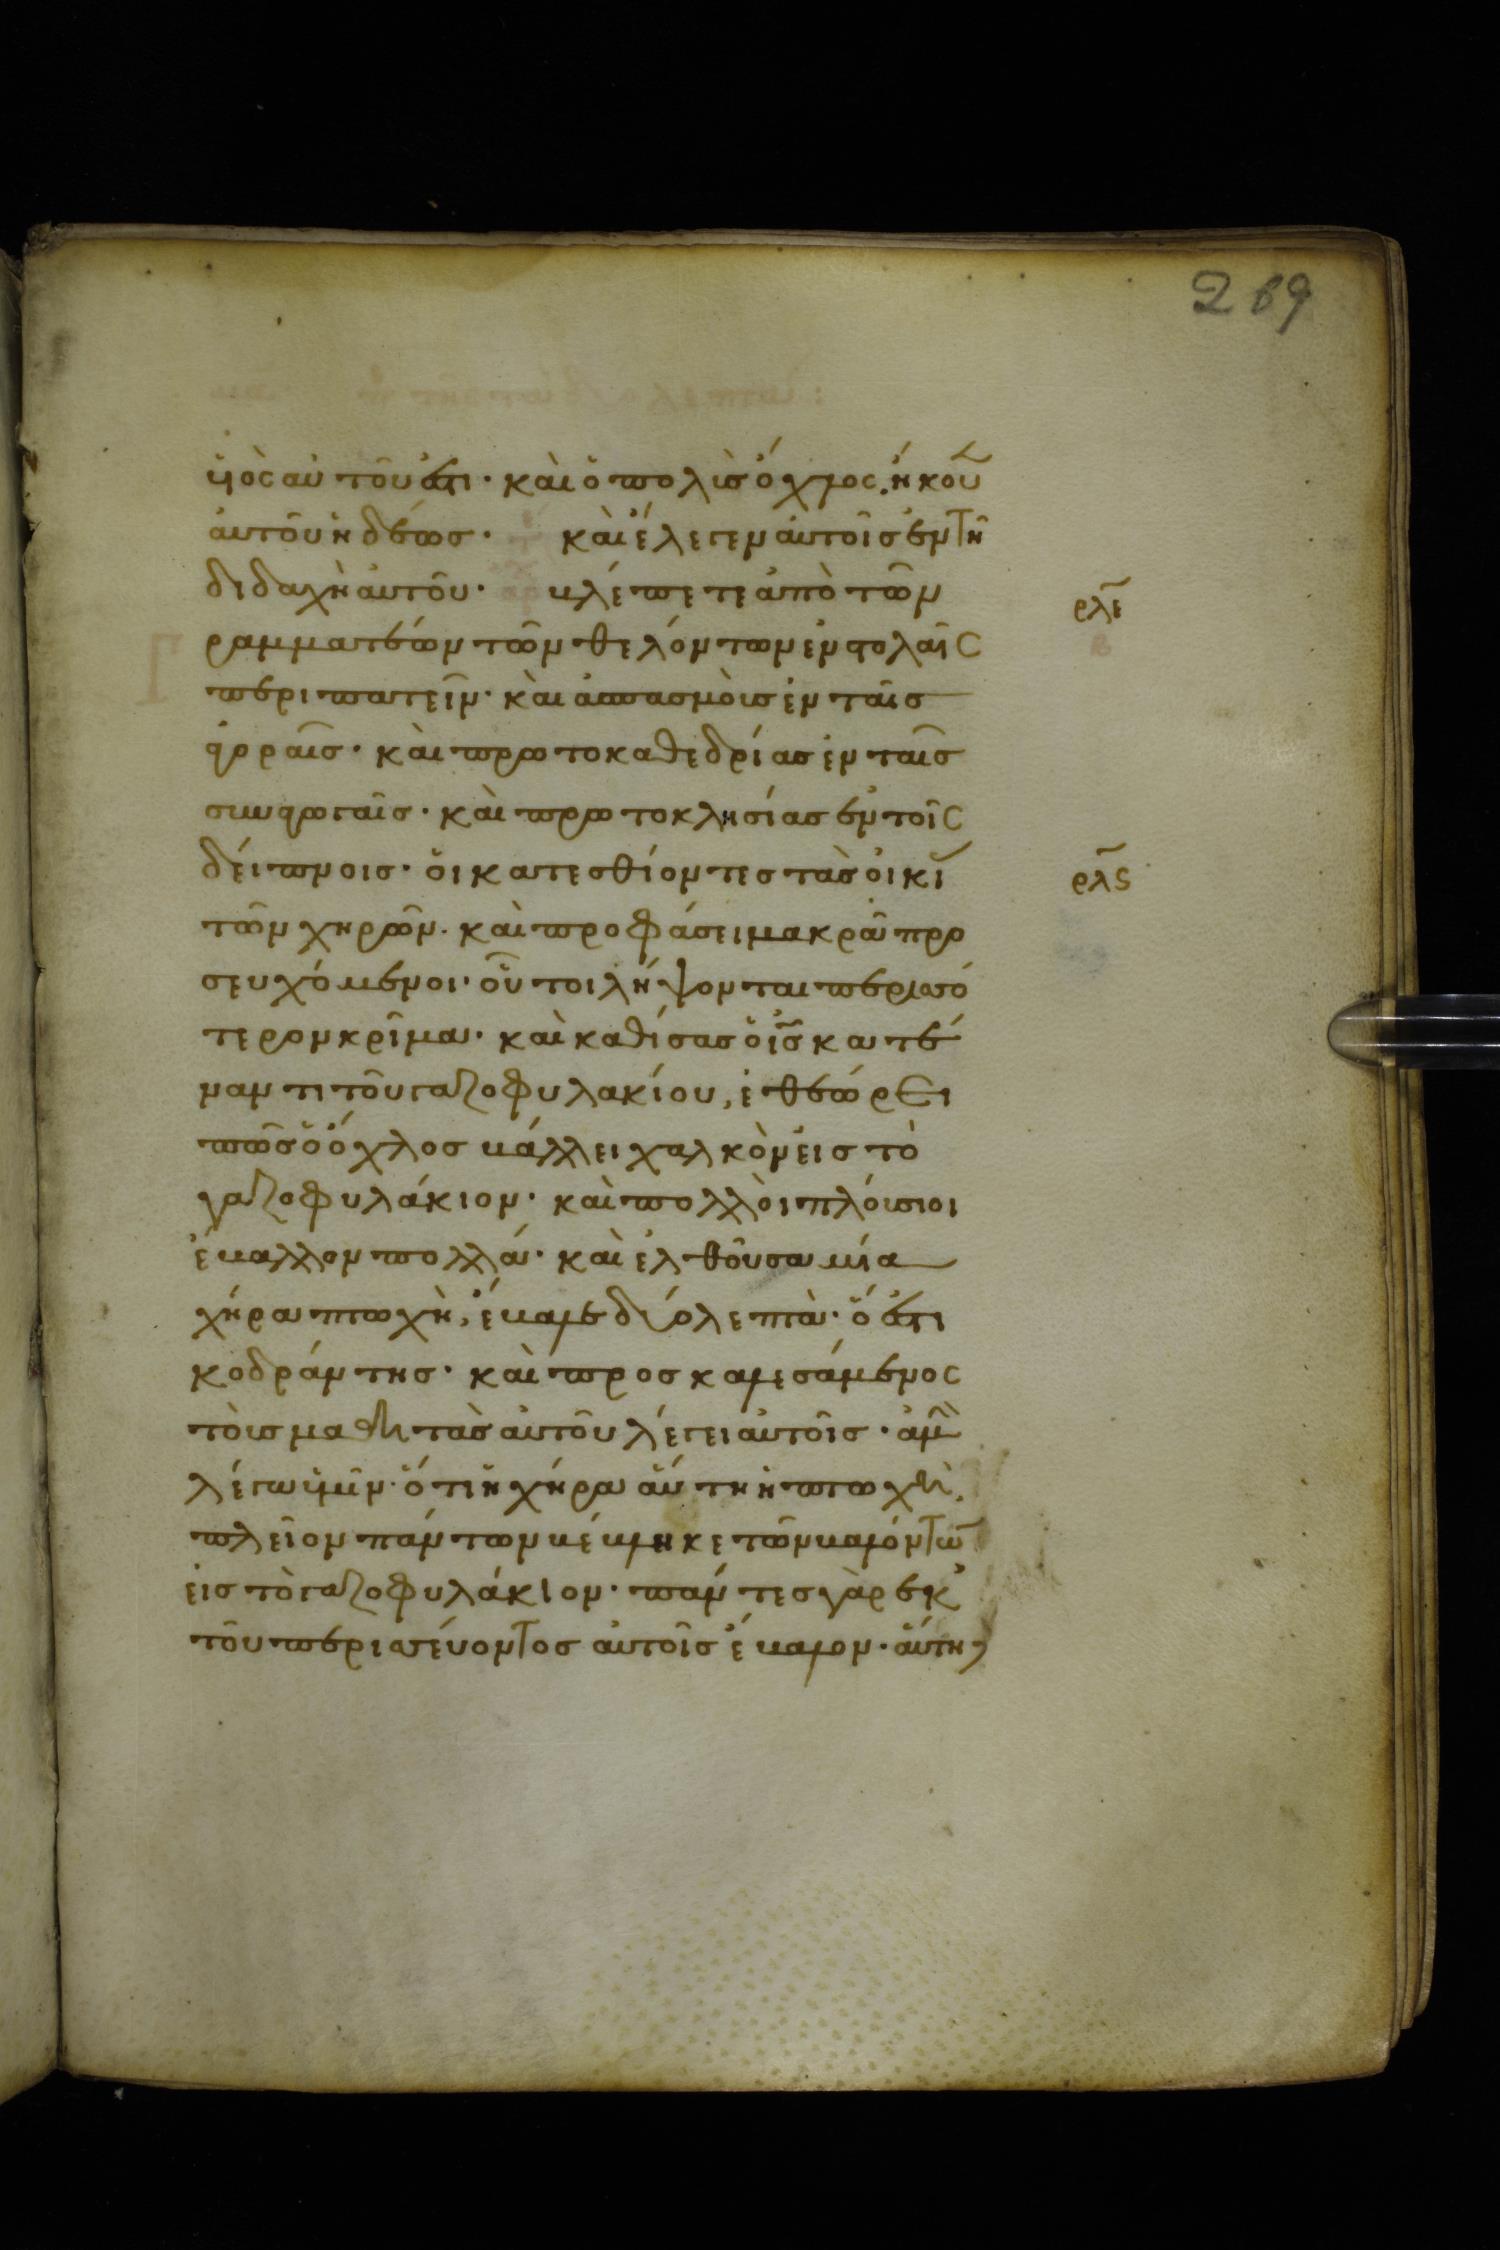 269
ὑιὸς αὐτοῦ ἐστι· καὶ ὁ πολὺς ὄχλος, ἤκου
ἀυτοῦ ἡδέως· καὶ ἔλεγεν ἀυτοῖς ἐν τῆ
διδαχῆ ἀυτοῦ· βλέπετε ἀπὸ τῶν
ρλε
γραμματέων τῶν θελόντων ἐν στολαῖς
περιπατεῖν· καὶ ἀσπασμοὺς ἐν ταῖς
ἀγοραῖς· καὶ πρωτοκαθεδρίας ἐν ταῖς
συναγωγαῖς· καὶ πρωτοκλησίας ἐν τοῖς
δείπνοις· ὁι κατεσθίοντες τὰς οἰκί
ρλς
τῶν χηρῶν· καὶ προφάσει μακρᾶ προ
σευχόμενοι· οὗτοι λήψονται περισσό
τερον κρῖμα· καὶ καθίσας ὁ ις κατέ
ναντι τοῦ γαζοφυλακίου, ἐθεώρει
πῶς ὁ ὄχλος βάλλει χαλκὸν εἰς τὸ
γαζοφυλάκιον· καὶ πολλοὶ πλούσιοι
ἔβαλλον πολλά· καὶ ἐλθοῦσα μία
χήρα πτωχὴ, ἔβαλε δύο λεπτὰ· ὅ ἐστι
κοδράντης· καὶ προσκαλεσάμενος
τοὺς μαθητὰς ἀυτοῦ λέγει ἀυτοῖς· ἀμὴν
λέγω ὑμῖν· ὅτι ἡ χήρα ἅυτη ἡ πτωχὴ,
πλεῖον πάντων βέβληκε τῶν βαλόντων
εἰς τὸ γαζοφυλάκιον· πάντες γὰρ ἐκ
τοῦ περισσέυοντος ἀυτοῖς ἔβαλον· ἅυτη